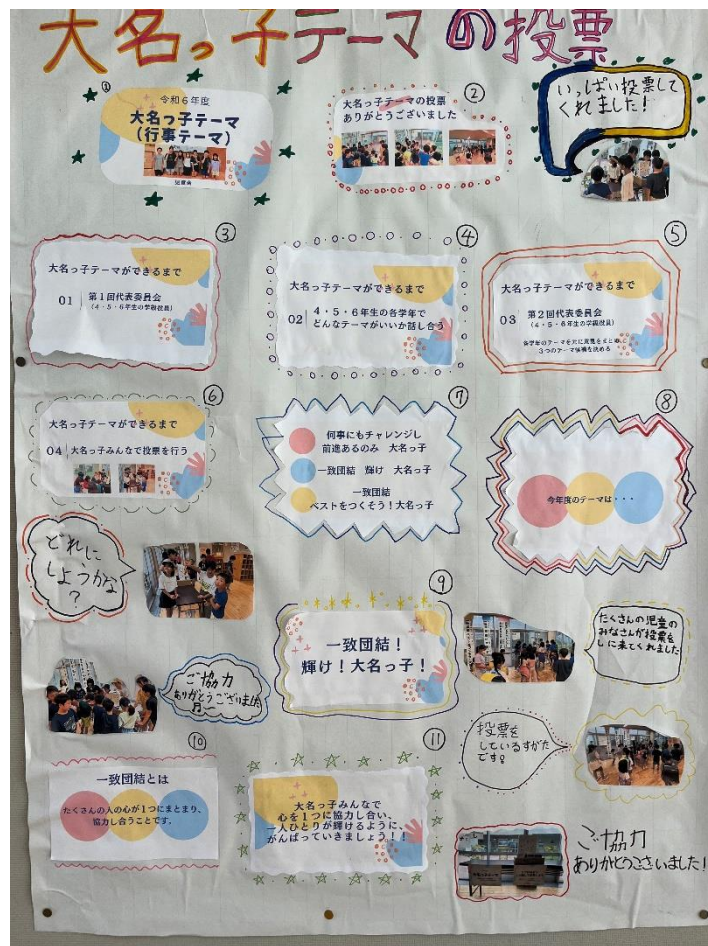 大名っ子テーマの投票
①
令和6年度
大名っ子テーマ
(行事テーマ)
児童会
②
大名っ子テーマの投票
ありがとうございました
いっぱい投票して
くれました!
③
大名っ子テーマができるまで
01
第1回代表委員会
(4・5・6年生の学級役員)
④
大名っ子テーマができるまで
02
4・5・6年生の各学年で
どんなテーマがいいか話し合う
⑤
大名っ子テーマができるまで
03
第2回代表委員会
(4・5・6年生の学級役員)
各学年のテーマを元に意見をまとめ
3つのテーマ候補を決める
⑥
大名っ子テーマができるまで
04
大名っ子みんなで投票を行う
⑦
何事にもチャレンジし
前進あるのみ 大名っ子
一致団結 輝け 大名っ子
一致団結
ベストをつくそう!大名っ子
⑧
今年度のテーマは・・・
どれに
しようかな
?
⑨
一致団結!
輝け!大名っ子!
たくさんの児童の
みなさんが投票を
しに来てくれました
ご協力
ありがとうございました
投票を
しているすがた
です。
⑩
一致団結とは
たくさんの人の心が1つにまとまり、
協力し合うことです.
⑪
大名っ子みんなで
心を1つに協力し合い、
一人ひとりが輝けるように、
がんばっていきましょう!!
ご協力
ありがとうございました!